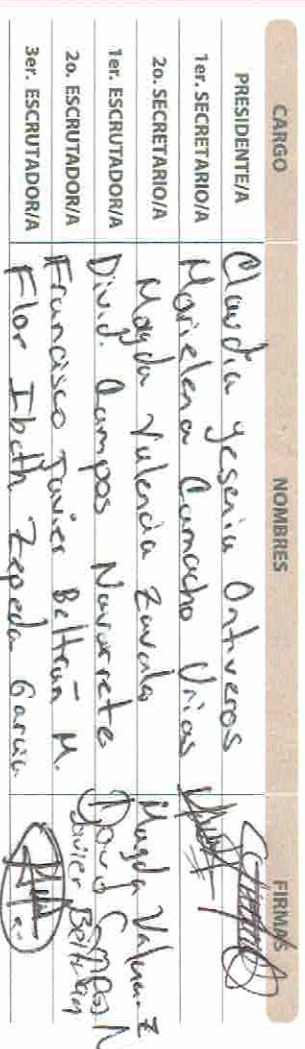 CARGO NOMBRES FIRMAS
PRESIDENTE/A Claudia Yesenia Ontiveros
1er. SECRETARIO/A Marielena Camacho Urias
2o. SECRETARIO/A Magda Valencia Zavala Magda Valen. Z
1er. ESCRUTADOR/A David. Campos Navarrete David Campos N
2o. ESCRUTADOR/A Francisco Javier Beltran M. Javier Beltran
3er. ESCRUTADOR/A Flor Ibeth Zepeda Garcia.